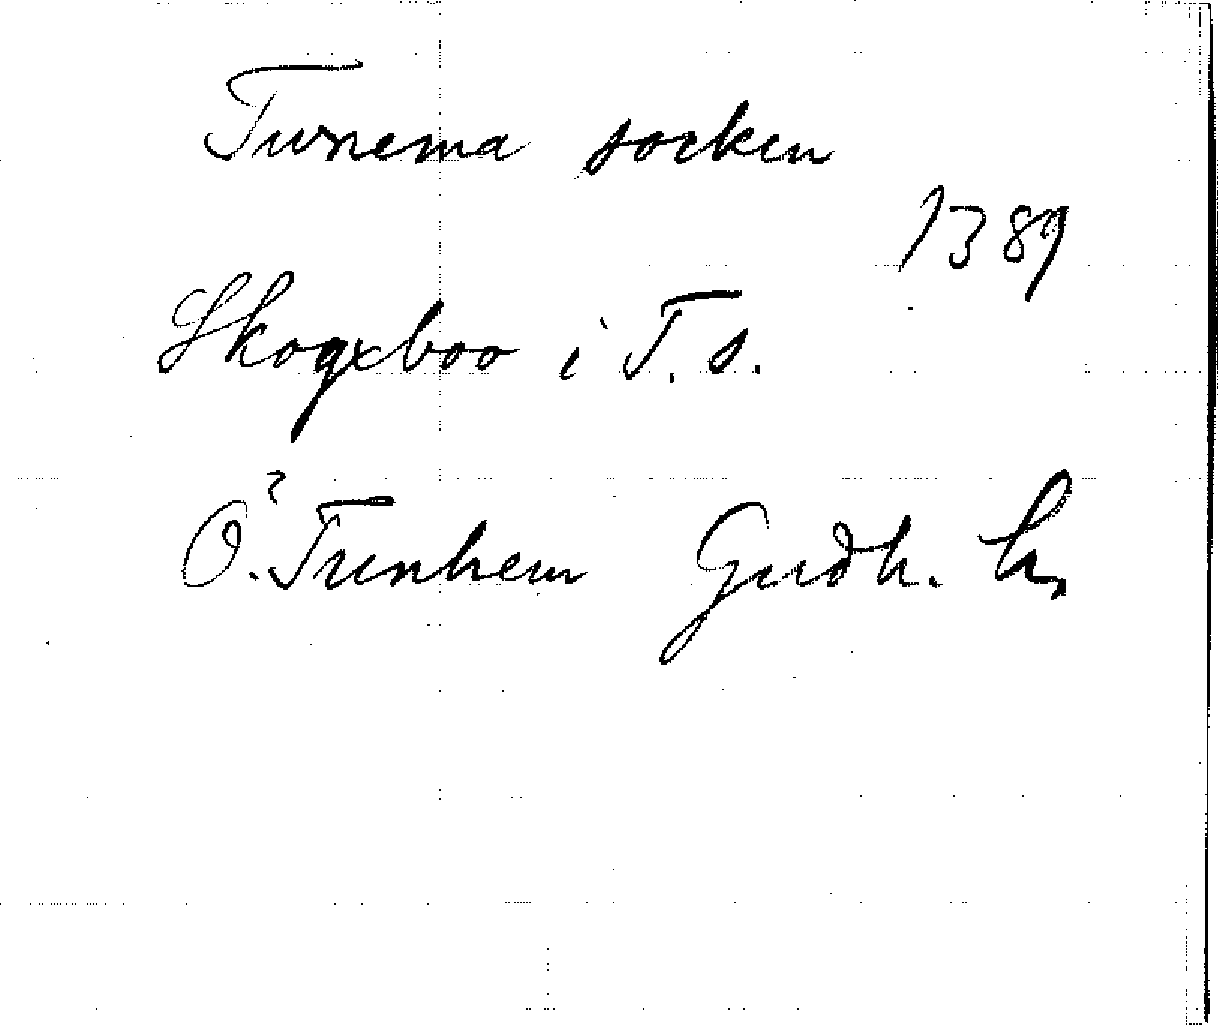 Tunema socken
1389
Skogxboo i T. s.
?
Ö. Tunhem Gudh. hs